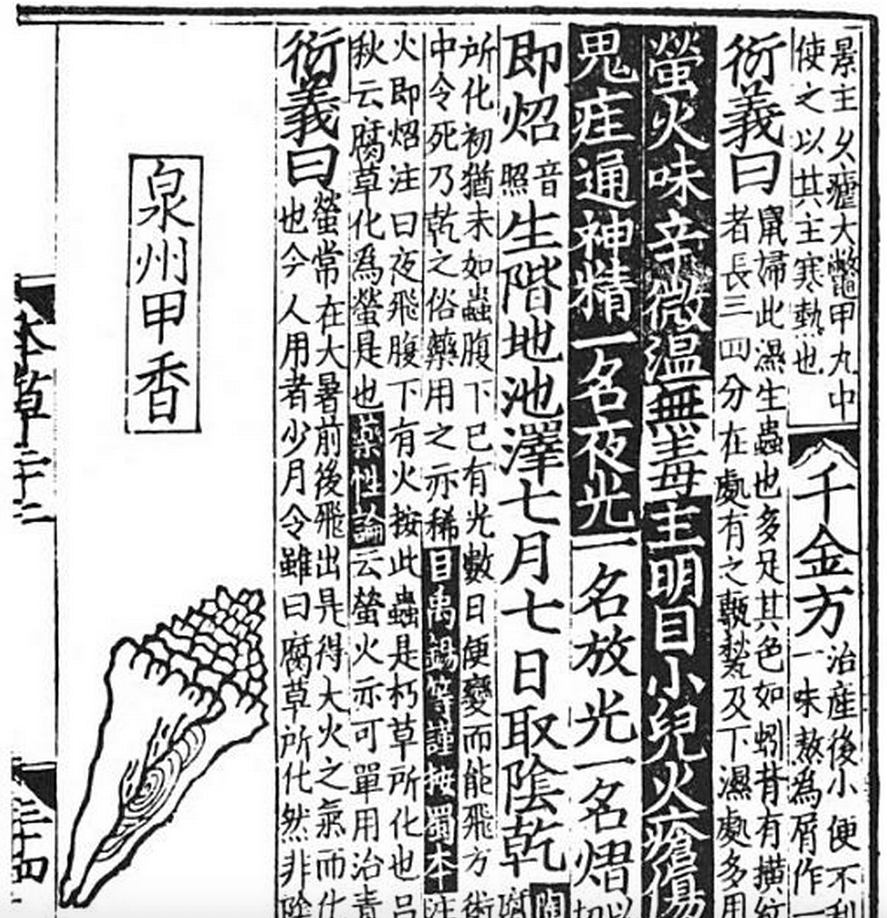 景主久瘧大鼈甲丸中
使之以其主寒熱也
千金方
治産後小便不利
一味熬為屑作
衍義曰
鼠婦此濕生蟲也多足其色如蚓背有橫紋
者長三四分在處有之甎甃及下濕處多用
螢火味辛微温無毒主明目小兒火瘡傷
鬼疰通神精一名夜光一名放光一名熠
即炤
音
照
生階地池澤七月七日取陰乾
陶
所化初猶未如蟲腹下已有光數日便變而能飛方術
中令死乃乾之俗藥用之亦稀
禹錫等謹按蜀本注
火即炤注曰夜飛腹下有火按此蟲是朽草所化也呂
秋云腐草化為螢是也藥性論云螢火亦可單用治青
衍義曰
螢常在大暑前後飛出是得大火之氣而化
也今人用者少月令雖曰腐草所化然非陰
泉州甲香
本草二十二
二十四